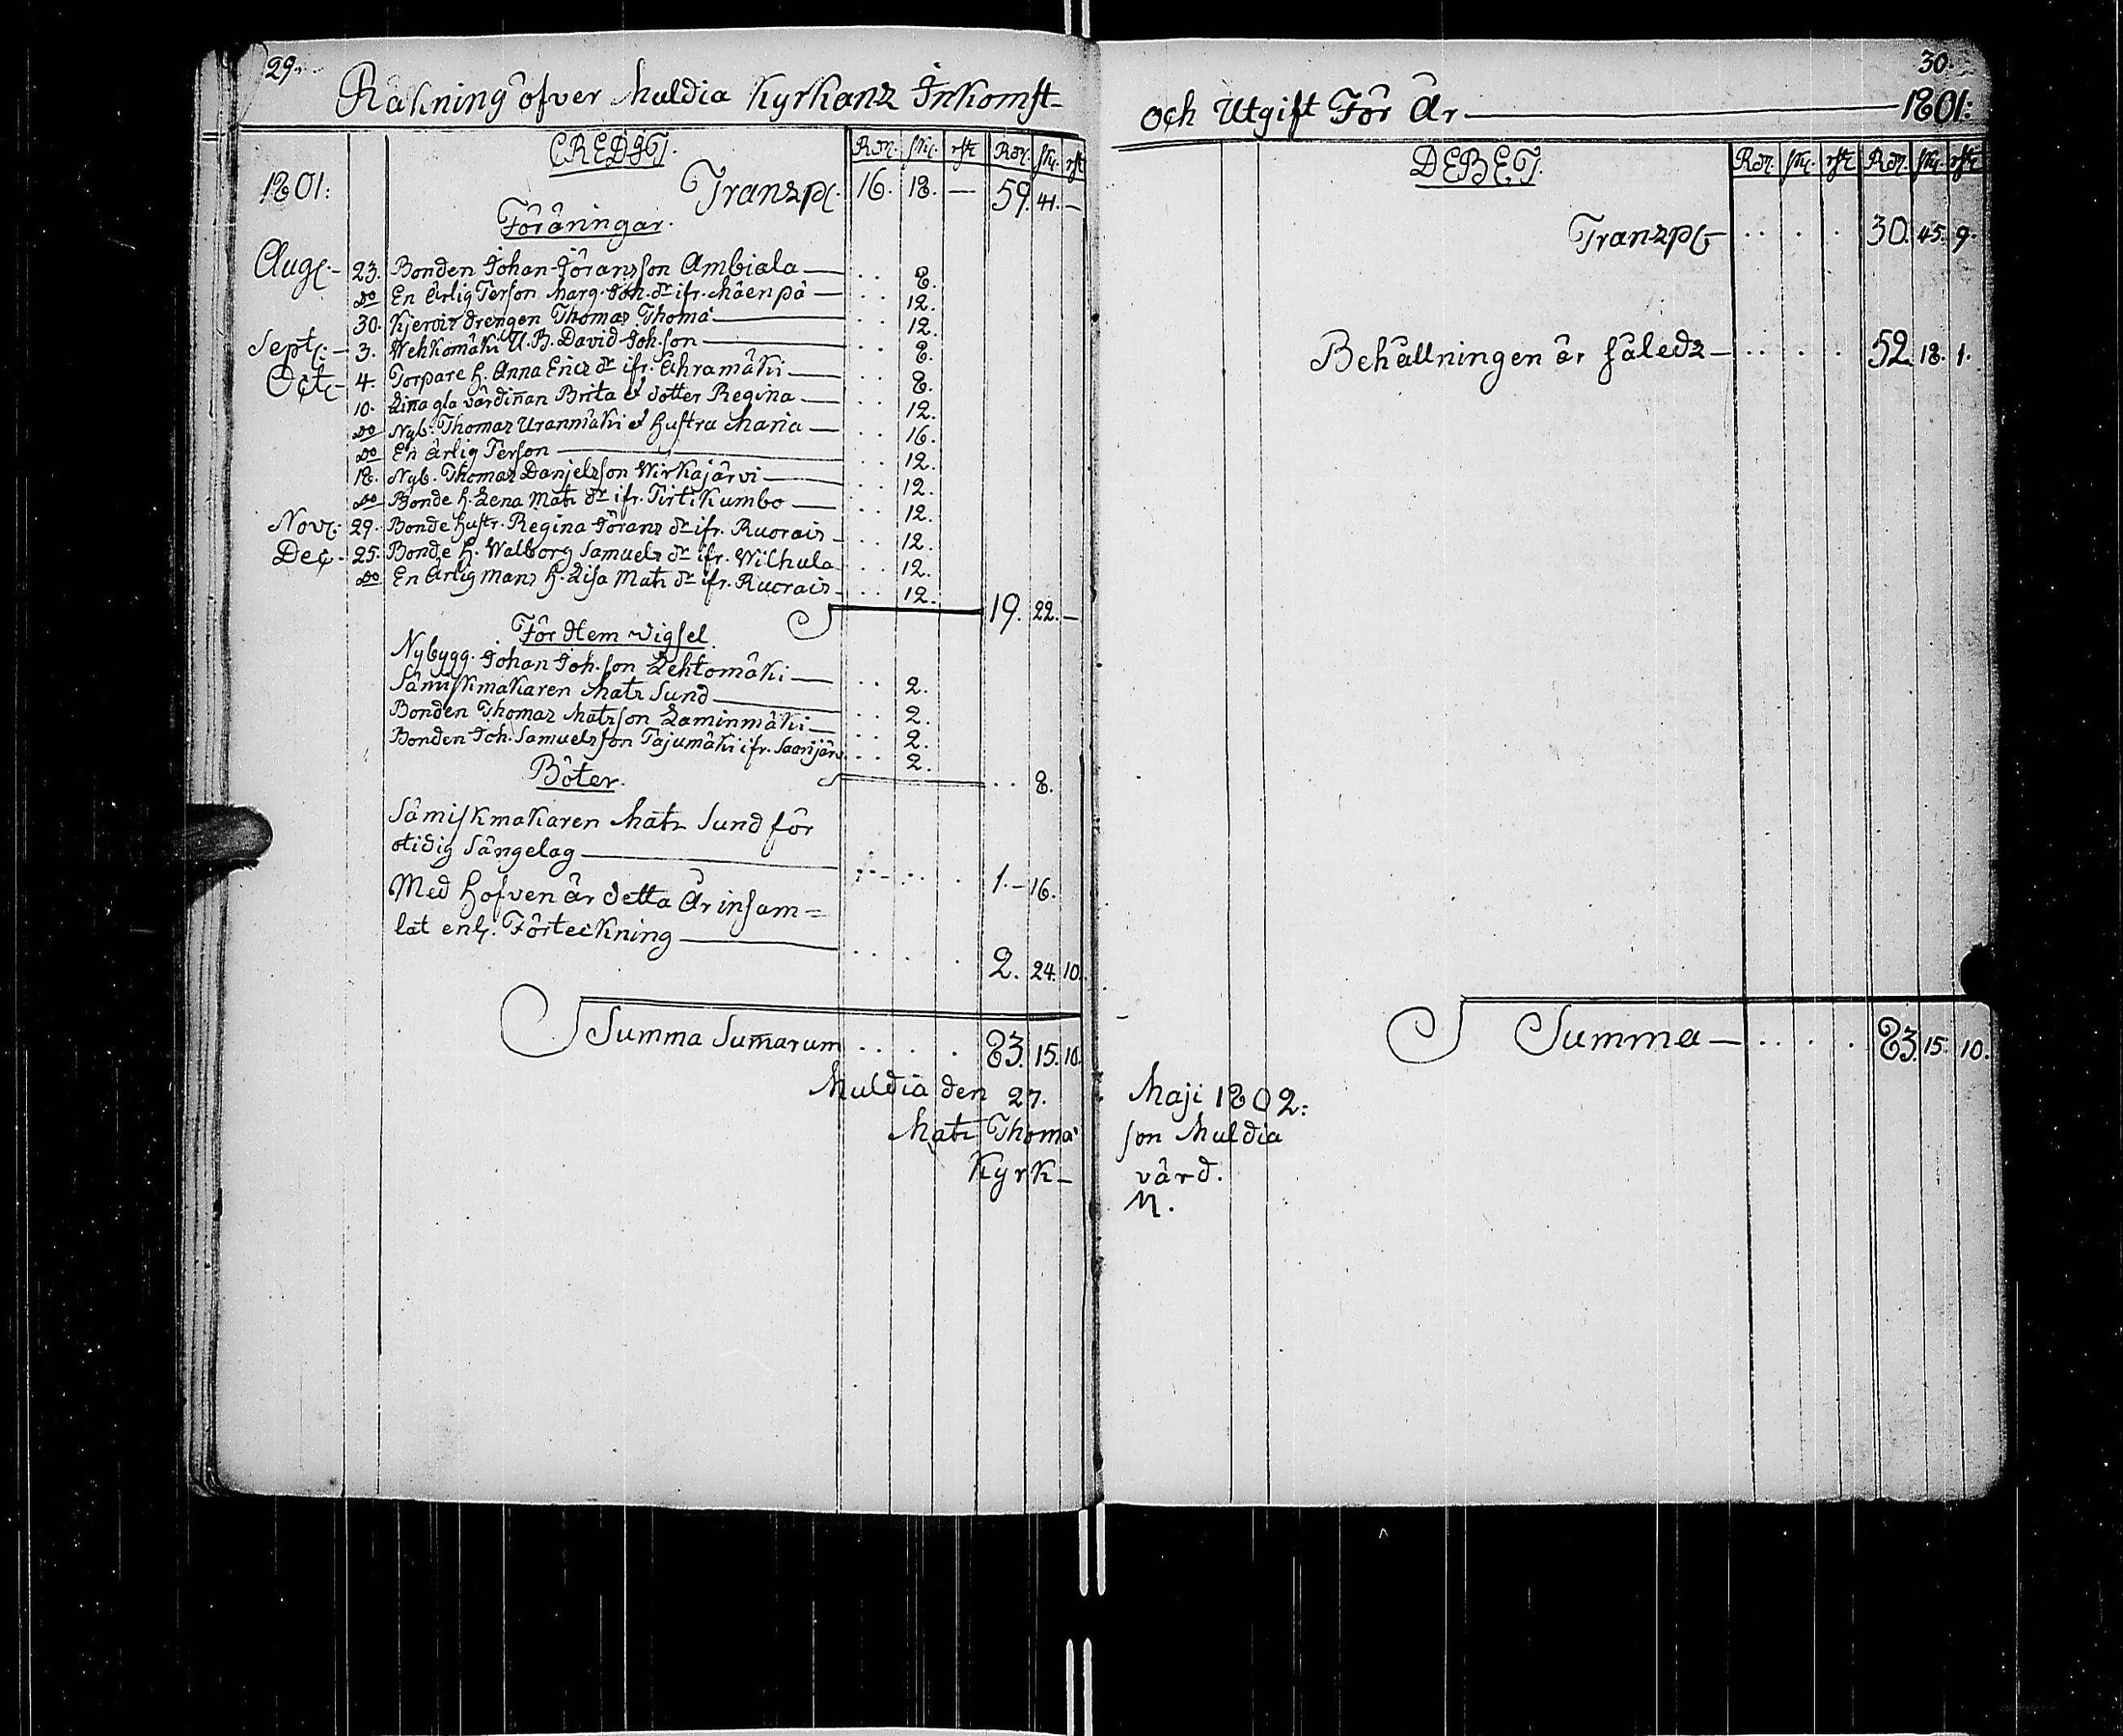 29.
Räkning öfver Muldia Kyrkans Inkomst-
CREDIT. Rdr. sk. rst. Rdr. sk. rst.
1801: Transpt. 16. 18. — 59. 41. —
Föräringar.
Aug. - 23. Bonden Johan Jöransson Ambiala — .. 8.
Do En Ärlig Person Marg. Joh. dr. ifr. Mäenpä — .. 12.
30. Thomas Thomæ — .. 12.
Sept. - 3. Wehkomäki U. B. David Joh.son — .. 8.
Oct. - 4. Torpare h. Anna Erics dr. ifr. Ehramäki — .. 8.
10. gla värdinan Brita et dotter Regina — .. 12.
Do Nyb. Thomas Uranmäki et hustra Maria — .. 16.
Do En Ärlig Person — .. 12.
18. Nyb. Thomas Danjelsson Wirkajärvi — .. 12.
Do Bonde h. Lena Mats dr. ifr. Pirtikumbo — .. 12.
Nov. 29. Bonde hustr. Regina Jörans dr. ifr. Ruorais - .. 12.
Dec. - 25. Bonde h. Walborg Samuels dr. ifr. Wilhula .. 12.
Do En Ärlig mans h. Lisa Mats dr. ifr. Ruorais - .. 12.
S 19. 22. —
För Hem vigsel.
Nybygg. Johan Joh.son Lehtomäki — .. 2.
Sämiskmakaren Mats Sund — .. 2.
Bonden Thomas Matsson Laminmäki — .. 2.
Bonden Joh. Samuelsson Pajumäki ifr. Saarijärv. .. 2.
S .. 8.
Böter.
Sämiskmakaren Mats Sund för
otidig Sängelag — 1. - 16.
Med Hofven är detta År insam=
lat enl. Förteckning — 2. 24. 10.
S Summa Sumarum .. . . 83. 15. 10.
Muldia den 27.
Mats Thoma
Kyrk-
30.
och Utgift För År — 1801:
DEBET. Rdr. sk. rst. Rdr. sk. rst.
Transpt. — .. . . 30. 45. 9.
Behållningen är således — .. . . 52. 18. 1.
S Summa — .. . . 83. 15. 10.
Maji 1802:
son Muldia
värd.
M.